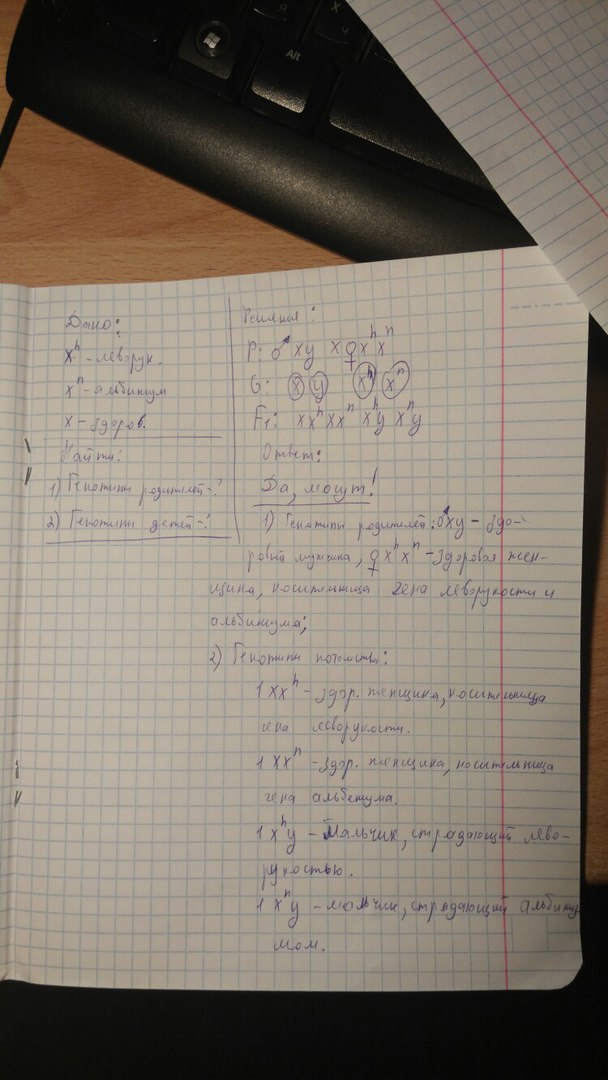 Я
Х
Ч
Alt
Дано:
Xʰ - леворук.
Xⁿ - альбинизм
X - здоров.
Найти:
1) Генотипы родителей-?
2) Генотипы детей-?
Решение:
P: ♂ XY X ♀ XʰXⁿ
G: X Y Xʰ Xⁿ
F1: XXʰ XXⁿ XʰY XⁿY
Ответ:
Да, могут!
1) Генотипы родителей: ♂XY - здо-
ровый мужчина, ♀ XʰXⁿ - здоровая жен-
щина, носительница гена леворукости и
альбинизма;
2) Генотипы потомства:
1 XXʰ - здор. женщина, носительница
гена леворукости.
1 XXⁿ - здор. женщина, носительница
гена альбенизма.
1 XʰY - Мальчик, страдающий лево-
рукостью.
1 XⁿY - мальчик, страдающий альбиниз
мом.